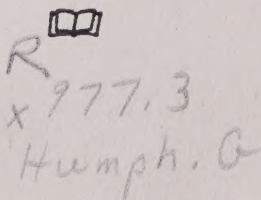 R
x 977.3
Humph. G